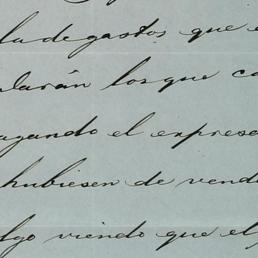 la de gastos que e
ularán los que co
agando el expresa
hubiesen de vend
lgo viendo que el